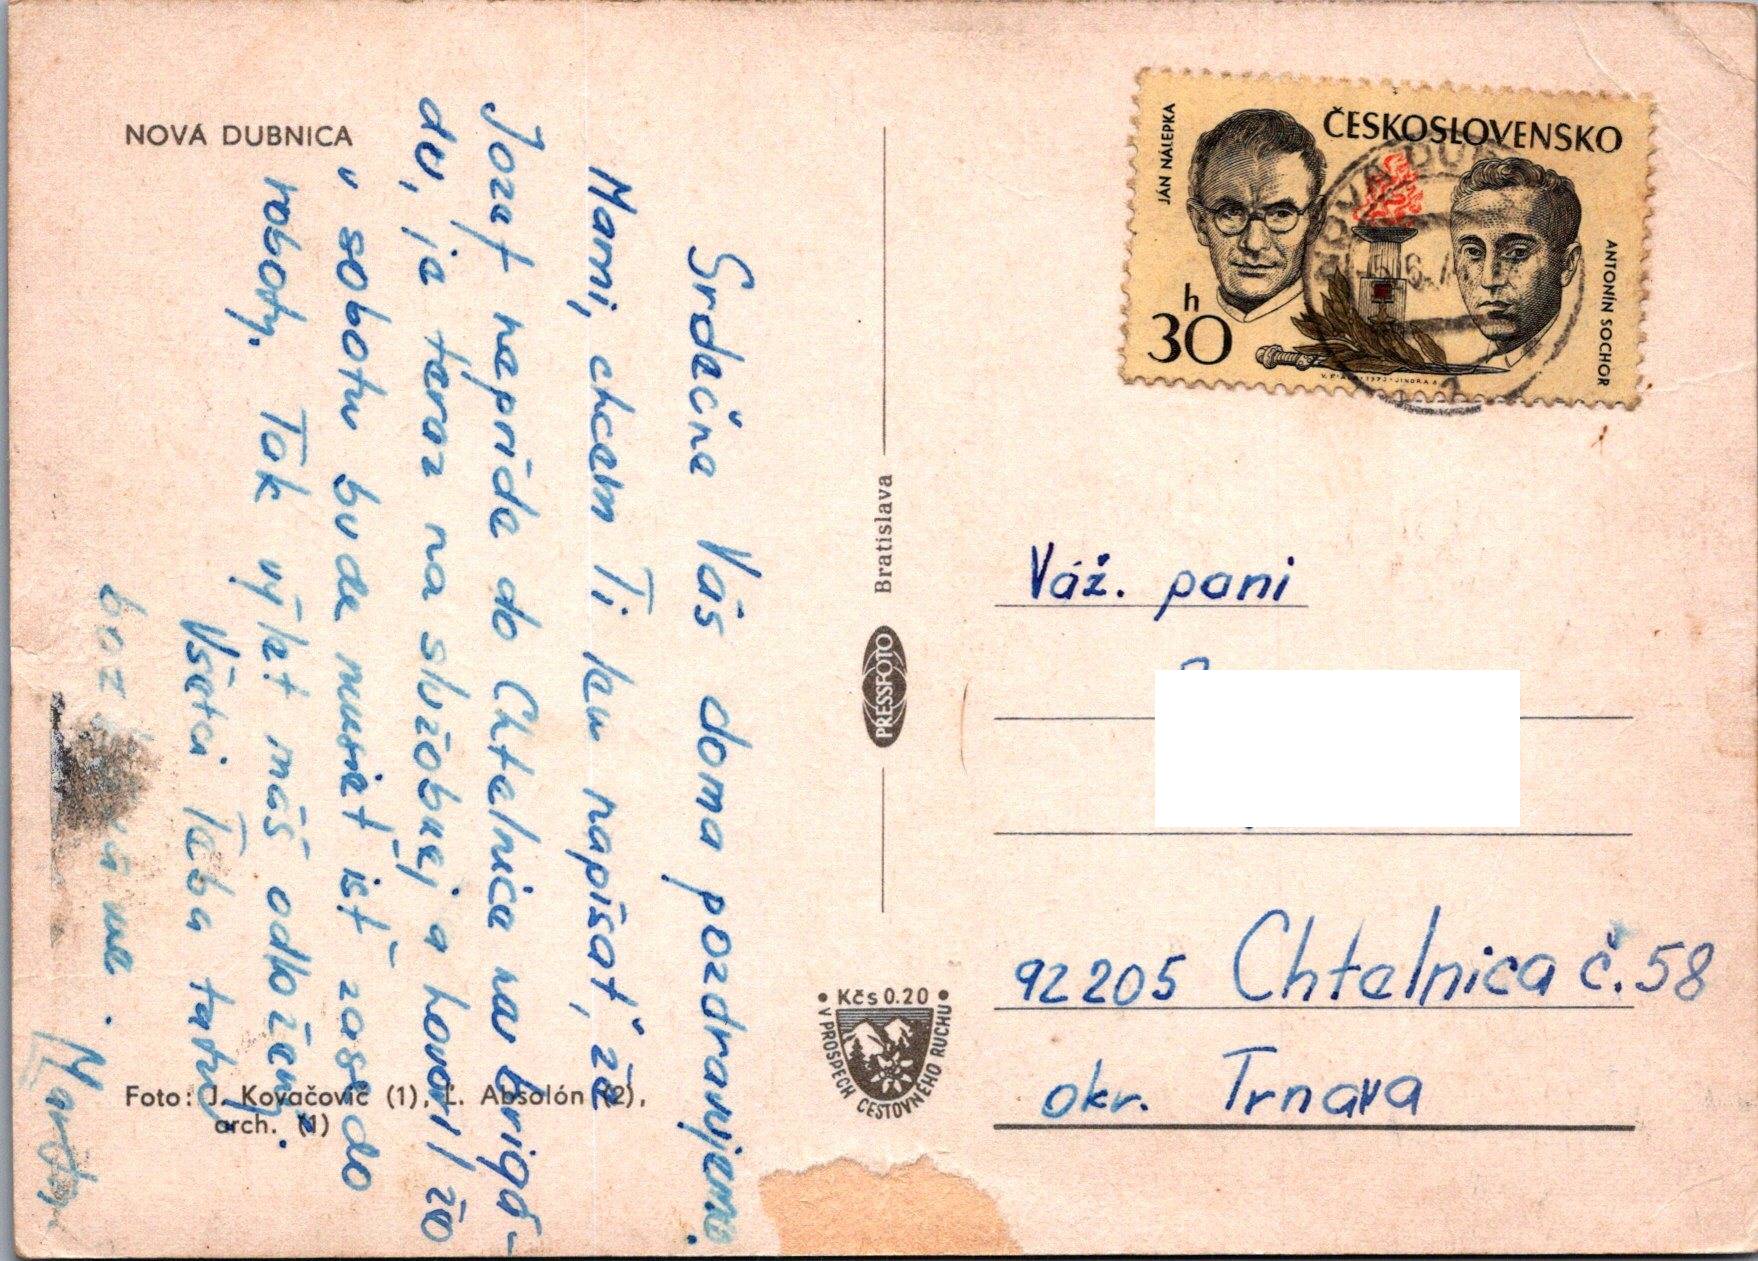 NOVÁ DUBNICA
Srdečne Vás doma pozdravujeme.
Mami, chcem Ti len napísať, že
Jozef nepríde do Chtelnice na brigá-
du, ja teraz na služobnej a hovoril že
v sobotu bude musieť ísť zase do
roboty. Tak výlet máš odložený.
Všetci Teba tatu
me. Martin
Foto: J. Kovačovič (1), Ľ. Absolón (2),
arch. (1)
Bratislava
PRESSFOTO
• Kčs 0.20 •
V PROSPECH CESTOVNÉHO RUCHU
ČESKOSLOVENSKO
JÁN NÁLEPKA
ANTONÍN SOCHOR
30 h
1973 · JINDRA
Váž. pani
92205 Chtelnica č. 58
okr. Trnava